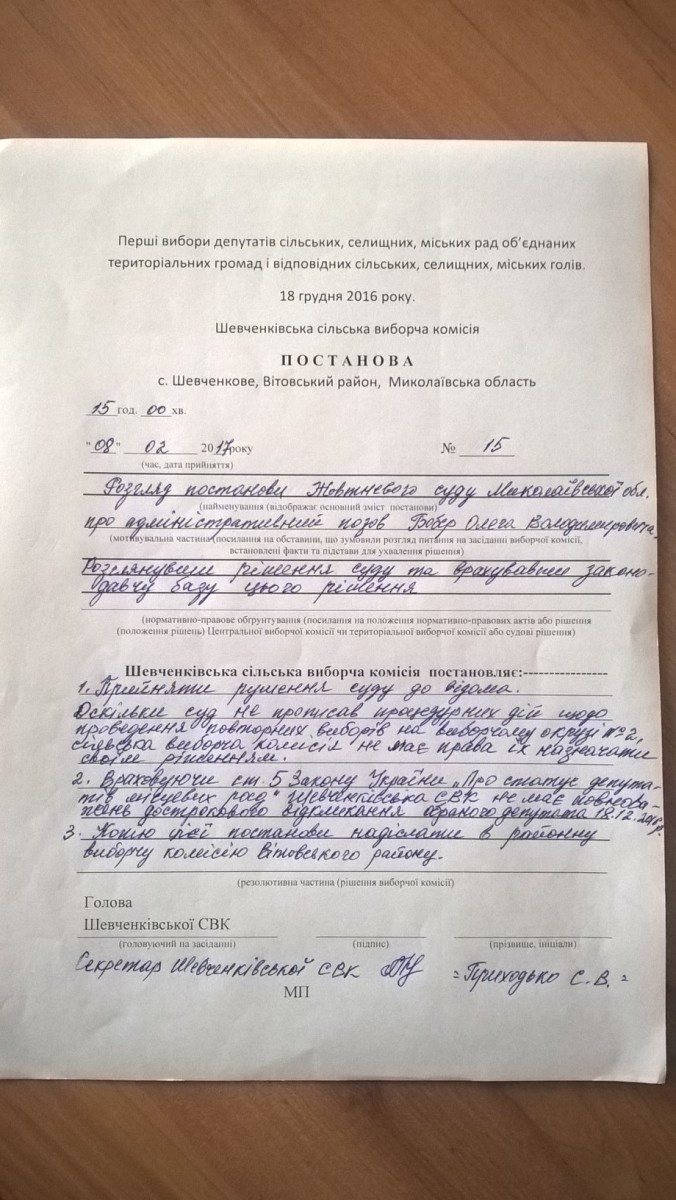 Перші вибори депутатів сільських, селищних, міських рад об’єднаних
територіальних громад і відповідних сільських, селищних, міських голів.
18 грудня 2016 року.
Шевченківська сільська виборча комісія
ПОСТАНОВА
с. Шевченкове, Вітовський район, Миколаївська область
15 год. 00 хв.
"08" 02 2017року № 15
(час, дата прийняття)
Розгляд постанови Жовтневого суду Миколаївської обл.
(найменування (відображає основний зміст постанови)
про адміністративний позов Бобер Олега Володимировича,
(мотивувальна частина (посилання на обставини, що зумовили розгляд питання на засіданні виборчої комісії,
встановлені факти та підстави для ухвалення рішення)
Розглянувши рішення суду та врахувавши законо-
давчу базу цього рішення
(нормативно-правове обґрунтування (посилання на положення нормативно-правових актів або рішення
(положення рішень) Центральної виборчої комісії чи територіальної виборчої комісії або судові рішення)
Шевченківська сільська виборча комісія постановляє:----------------
1. Прийняти рішення суду до відома.
Оскільки суд не прописав процедурних дій щодо
проведення повторних виборів на виборчому окрузі №2,
сільська виборча комісія не має права їх назначати
своїм рішенням.
2. Враховуючи ст. 5 Закону України „Про статус депута-
тів місцевих рад" Шевченківська СВК не має повнова-
жень дострокового відкликання обраного депутата 18.12.2016р.
3. Копію цієї постанови надіслати в районну
виборчу комісію Вітовського району.
(резолютивна частина (рішення виборчої комісії)
Голова
Шевченківської СВК
(головуючий на засіданні) (підпис) (прізвище, ініціали)
Секретар Шевченківської СВК = Приходько С. В. =
МП